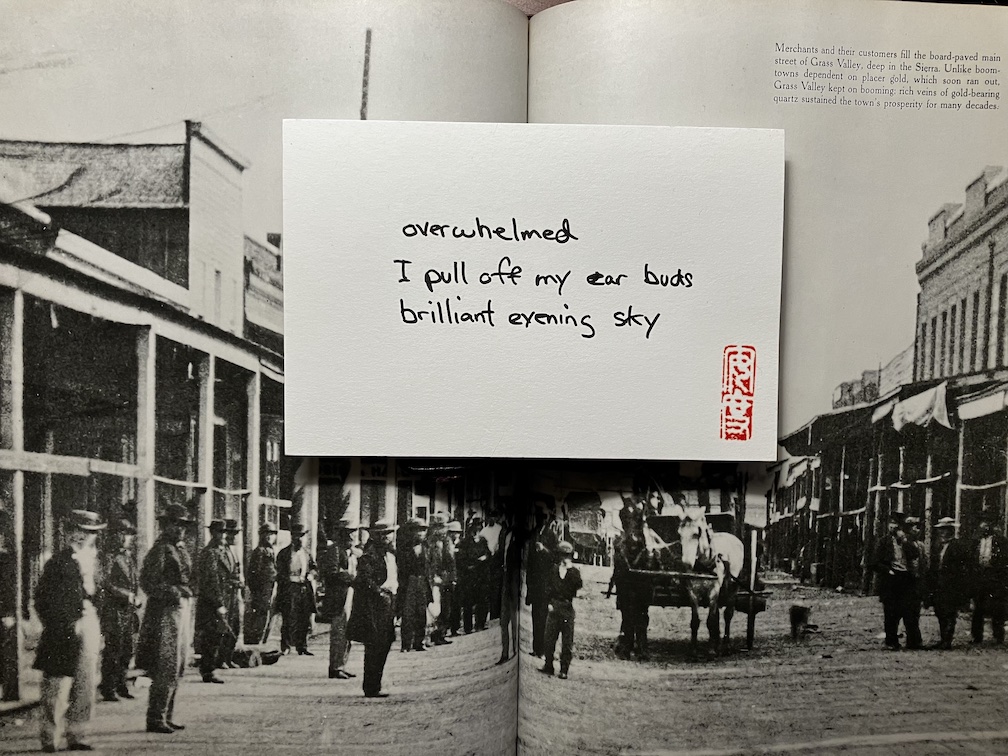 Merchants and their customers fill the board-paved main
street of Grass Valley, deep in the Sierra. Unlike boom-
towns dependent on placer gold, which soon ran out,
Grass Valley kept on booming: rich veins of gold-bearing
quartz sustained the town's prosperity for many decades.
overwhelmed
I pull off my ear buds
brilliant evening sky